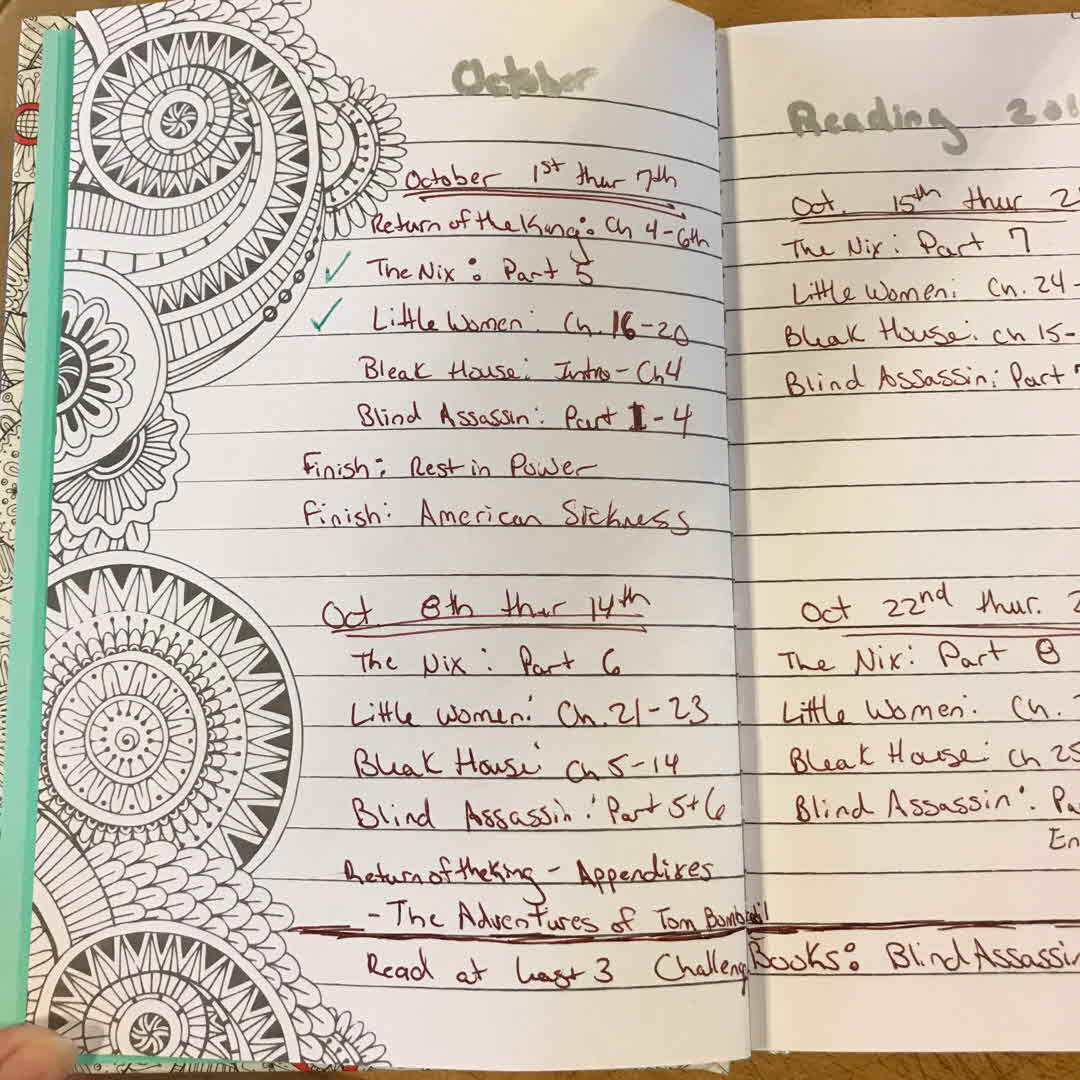 October
October 1st thur 7th
Return of the King: Ch 4-6th
✓ The Nix: Part 5
✓ Little Women: Ch. 16-20
Bleak House: Intro - Ch 4
Blind Assassin: Part 1-4
Finish: Rest in Power
Finish: American Sickness
Oct 8th thur 14th
The Nix: Part 6
Little Women: Ch. 21-23
Bleak House: Ch 5-14
Blind Assassin: Part 5+6
Return of the King - Appendixes
- The Adventures of Tom Bombadil
Read at least 3 Challenge Books: Blind Assassin
Reading 201
Oct. 15th thur 2
The Nix: Part 7
Little Women: Ch. 24-
Bleak House: Ch 15-
Blind Assassin: Part 7
Oct 22nd thur. 2
The Nix: Part 8
Little Women: Ch.
Bleak House: Ch 25
Blind Assassin: Pa
En